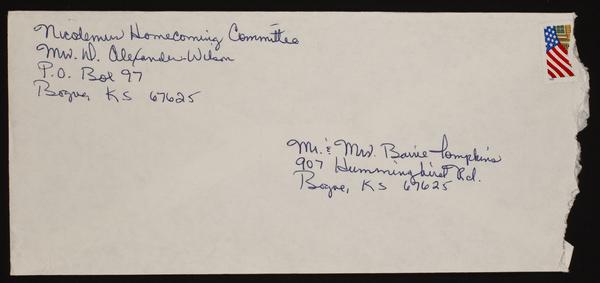 Nicodemus Homecoming Committee
Mrs. W. Alexander-Wilson
P.O. Box 97
Bogue, KS 67625
Mr. & Mrs. Barrie Tompkins
907 Hummingbird Rd.
Bogue, KS 67625